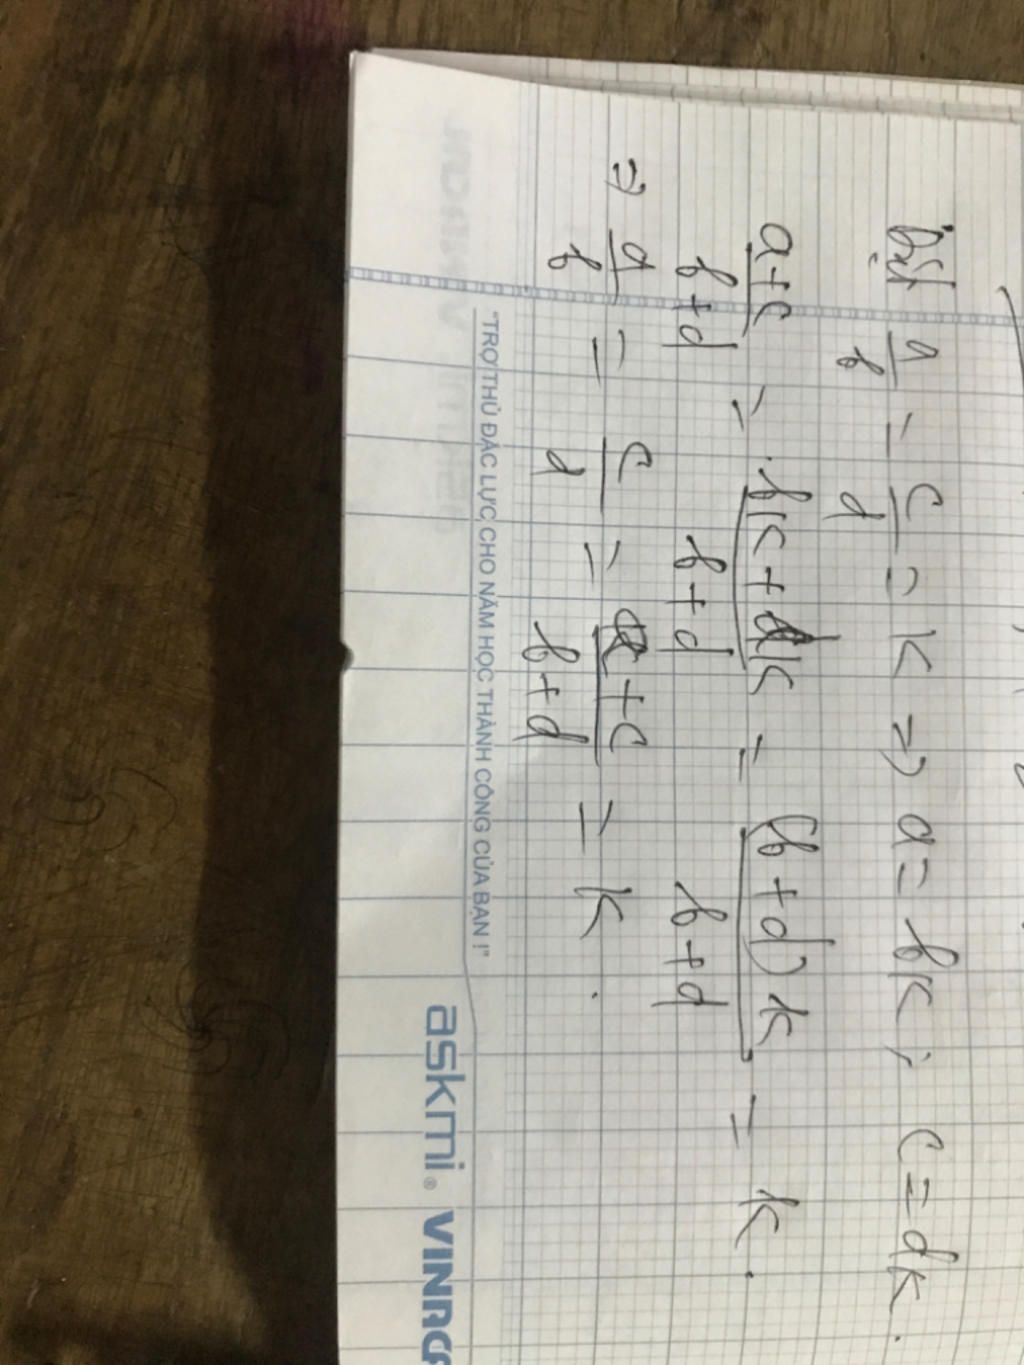 Đặt a/b = c/d = k => a = bk; c = dk.
a+c/b+d = bk+dk/b+d = (b+d)k/b+d = k.
=> a/b = c/d = a+c/b+d = k.
"TRỢ THỦ ĐẮC LỰC CHO NĂM HỌC THÀNH CÔNG CỦA BẠN !"
askmi® VINAC